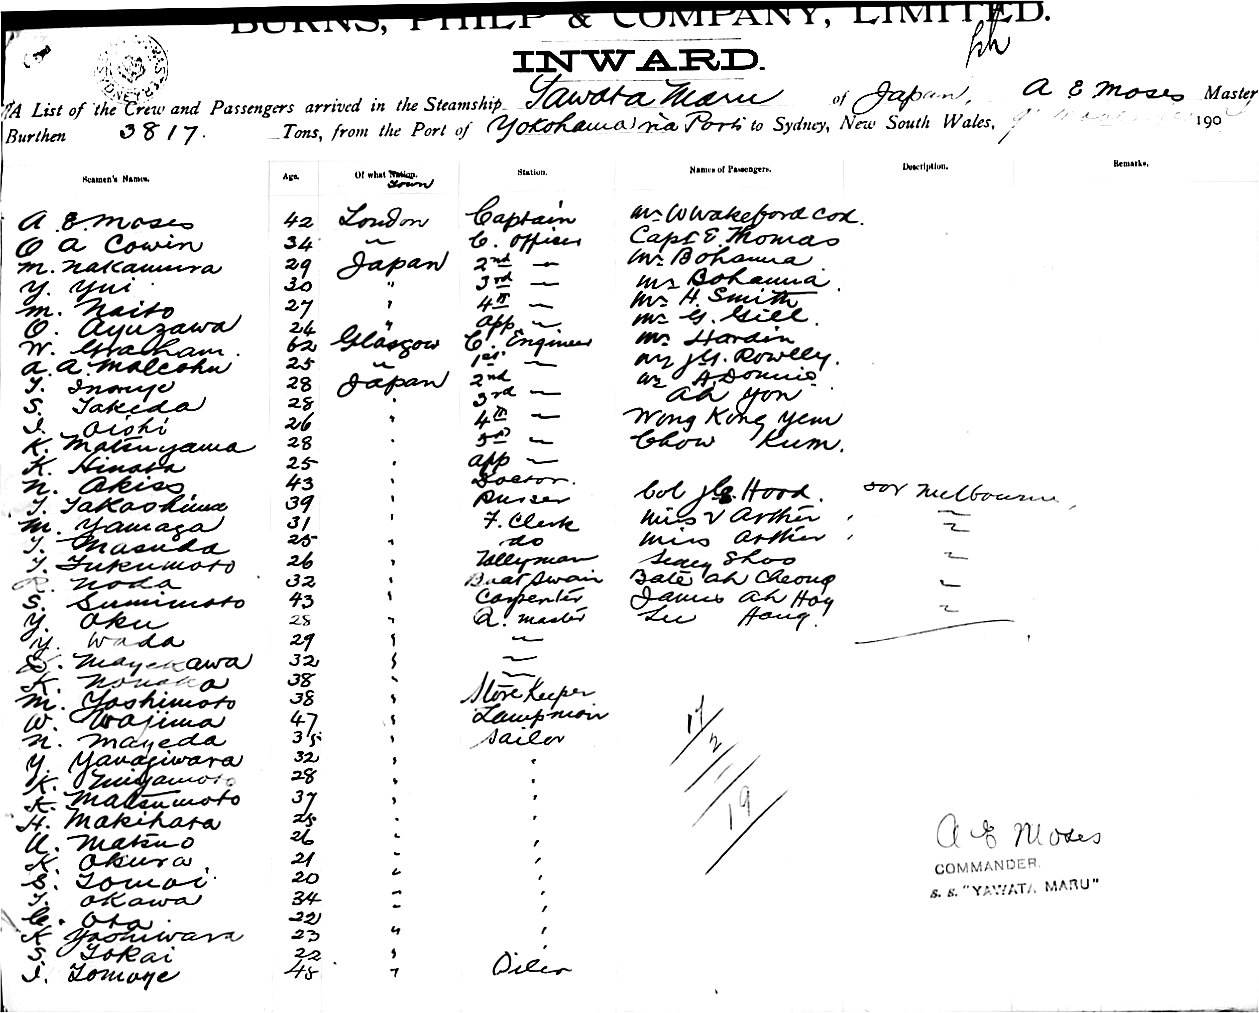 BURNS, PHILP & COMPANY, LIMITED.
INWARD.
A List of the Crew and Passengers arrived in the Steamship Yawata Maru of Japan, A E Moses Master
Burthen 3817. Tons, from the Port of Yokohama via Ports to Sydney, New South Wales, 190
Seamen's Names. Age. Of what Nation. Town Station. Names of Passengers. Description. Remarks.
A E. Moses 42 London Captain Mr W Wakeford Cox.
O A Cowin 34 " C. Officer Capt E Thomas
M. Nakamura 29 Japan 2nd " Mr Bohanna
Y. Yui 30 " 3rd " Mrs Bohanna.
M. Naito 27 " 4th " Mr H. Smith
O. Ayuzawa 24 " App " Mr G. Gill.
W. Graham. 62 Glasgow C. Engineer Mr Hardin
A. A. Malcolm 25 " 1st " J.G. Rowlly.
T. Inouye 28 Japan 2nd Mr A. Donnie
S. Takeda 28 " 3rd " Ah Yon
I. Oishi 26 " 4th " Wong Kong Yem
K. Matsuyama 28 " " Chow Kum.
K. Hinata 25 " App "
N. Akiss 43 " Doctor.
T. Takashima 39 " Purser Col J.G. Hood. for Melbourne,
M. Yamaga 31 " F. Clerk Miss V Arther "
T. Masuda 25 " do Miss Arther "
T. Fukumoto 26 " Tallyman Shoo "
R. Noda 32 " Boat Swain Date Ah Cheong "
S. Sumimoto 43 " Carpenter James Ah Hoy "
Y. Oku 28 " Q. Master Lee Hong.
Y. Wada 29 " "
Mayekawa 32 " "
K. Nonaka 38 " "
M. Yoshimoto 38 " Store Keeper
W. Wajima 47 " Lampman
N. Mayeda 35 " Sailor
Y Yanagiwara 32 " "
K. Miyamoto 28 " "
K. Matsumoto 37 " "
H. Makihara 25 " "
U. Matsuo 26 " "
K. Okura. 21 " "
S. Tomoi 20 " "
T. Okawa 34 " "
Ota 22 " "
K Yoshiwara 23 " "
S. Tokai 22 " "
I. Tomoye 48 " Oiler
17/2/19
A E Moses
COMMANDER.
S. S. "YAWATA MARU"